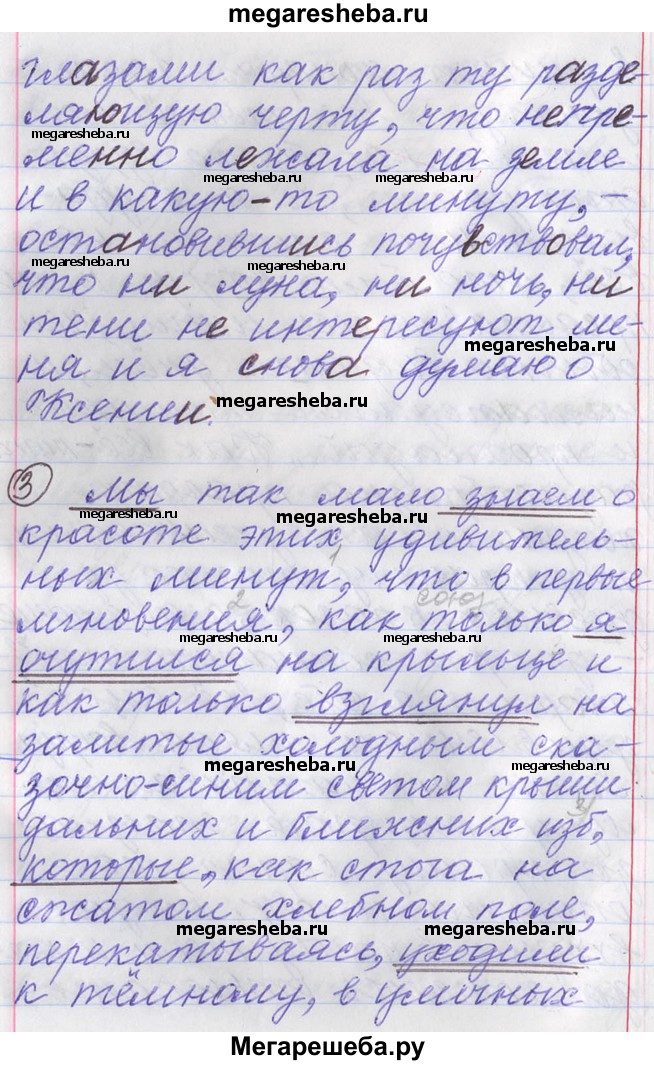 megaresheba.ru
глазами как раз ту разде-
ляющую черту, что непре-
megaresheba.ru
менно лежала на земле
megaresheba.ru megaresheba.ru
и в какую-то минуту, -
остановившись почувствовал,
megaresheba.ru megaresheba.ru
что ни луна, ни ночь, ни
тени не интересуют ме-
megaresheba.ru
ня и я снова думаю о
Ксении.
megaresheba.ru
3 Мы так мало знаем о
megaresheba.ru
красоте этих удивитель-
1
ных минут, что в первые
2 союз
мгновения, как только я
megaresheba.ru megaresheba.ru
очутился на крыльце и
как только взглянул на
залитые холодным ска-
megaresheba.ru megaresheba.ru
зочно-синим светом крыши
3
дальних и ближних изб,
которые, как стога на
сжатом хлебном поле,
megaresheba.ru megaresheba.ru
перекатываясь, уходили
к тёмному, в уличных
megaresheba.ru
Мегарешеба.ру